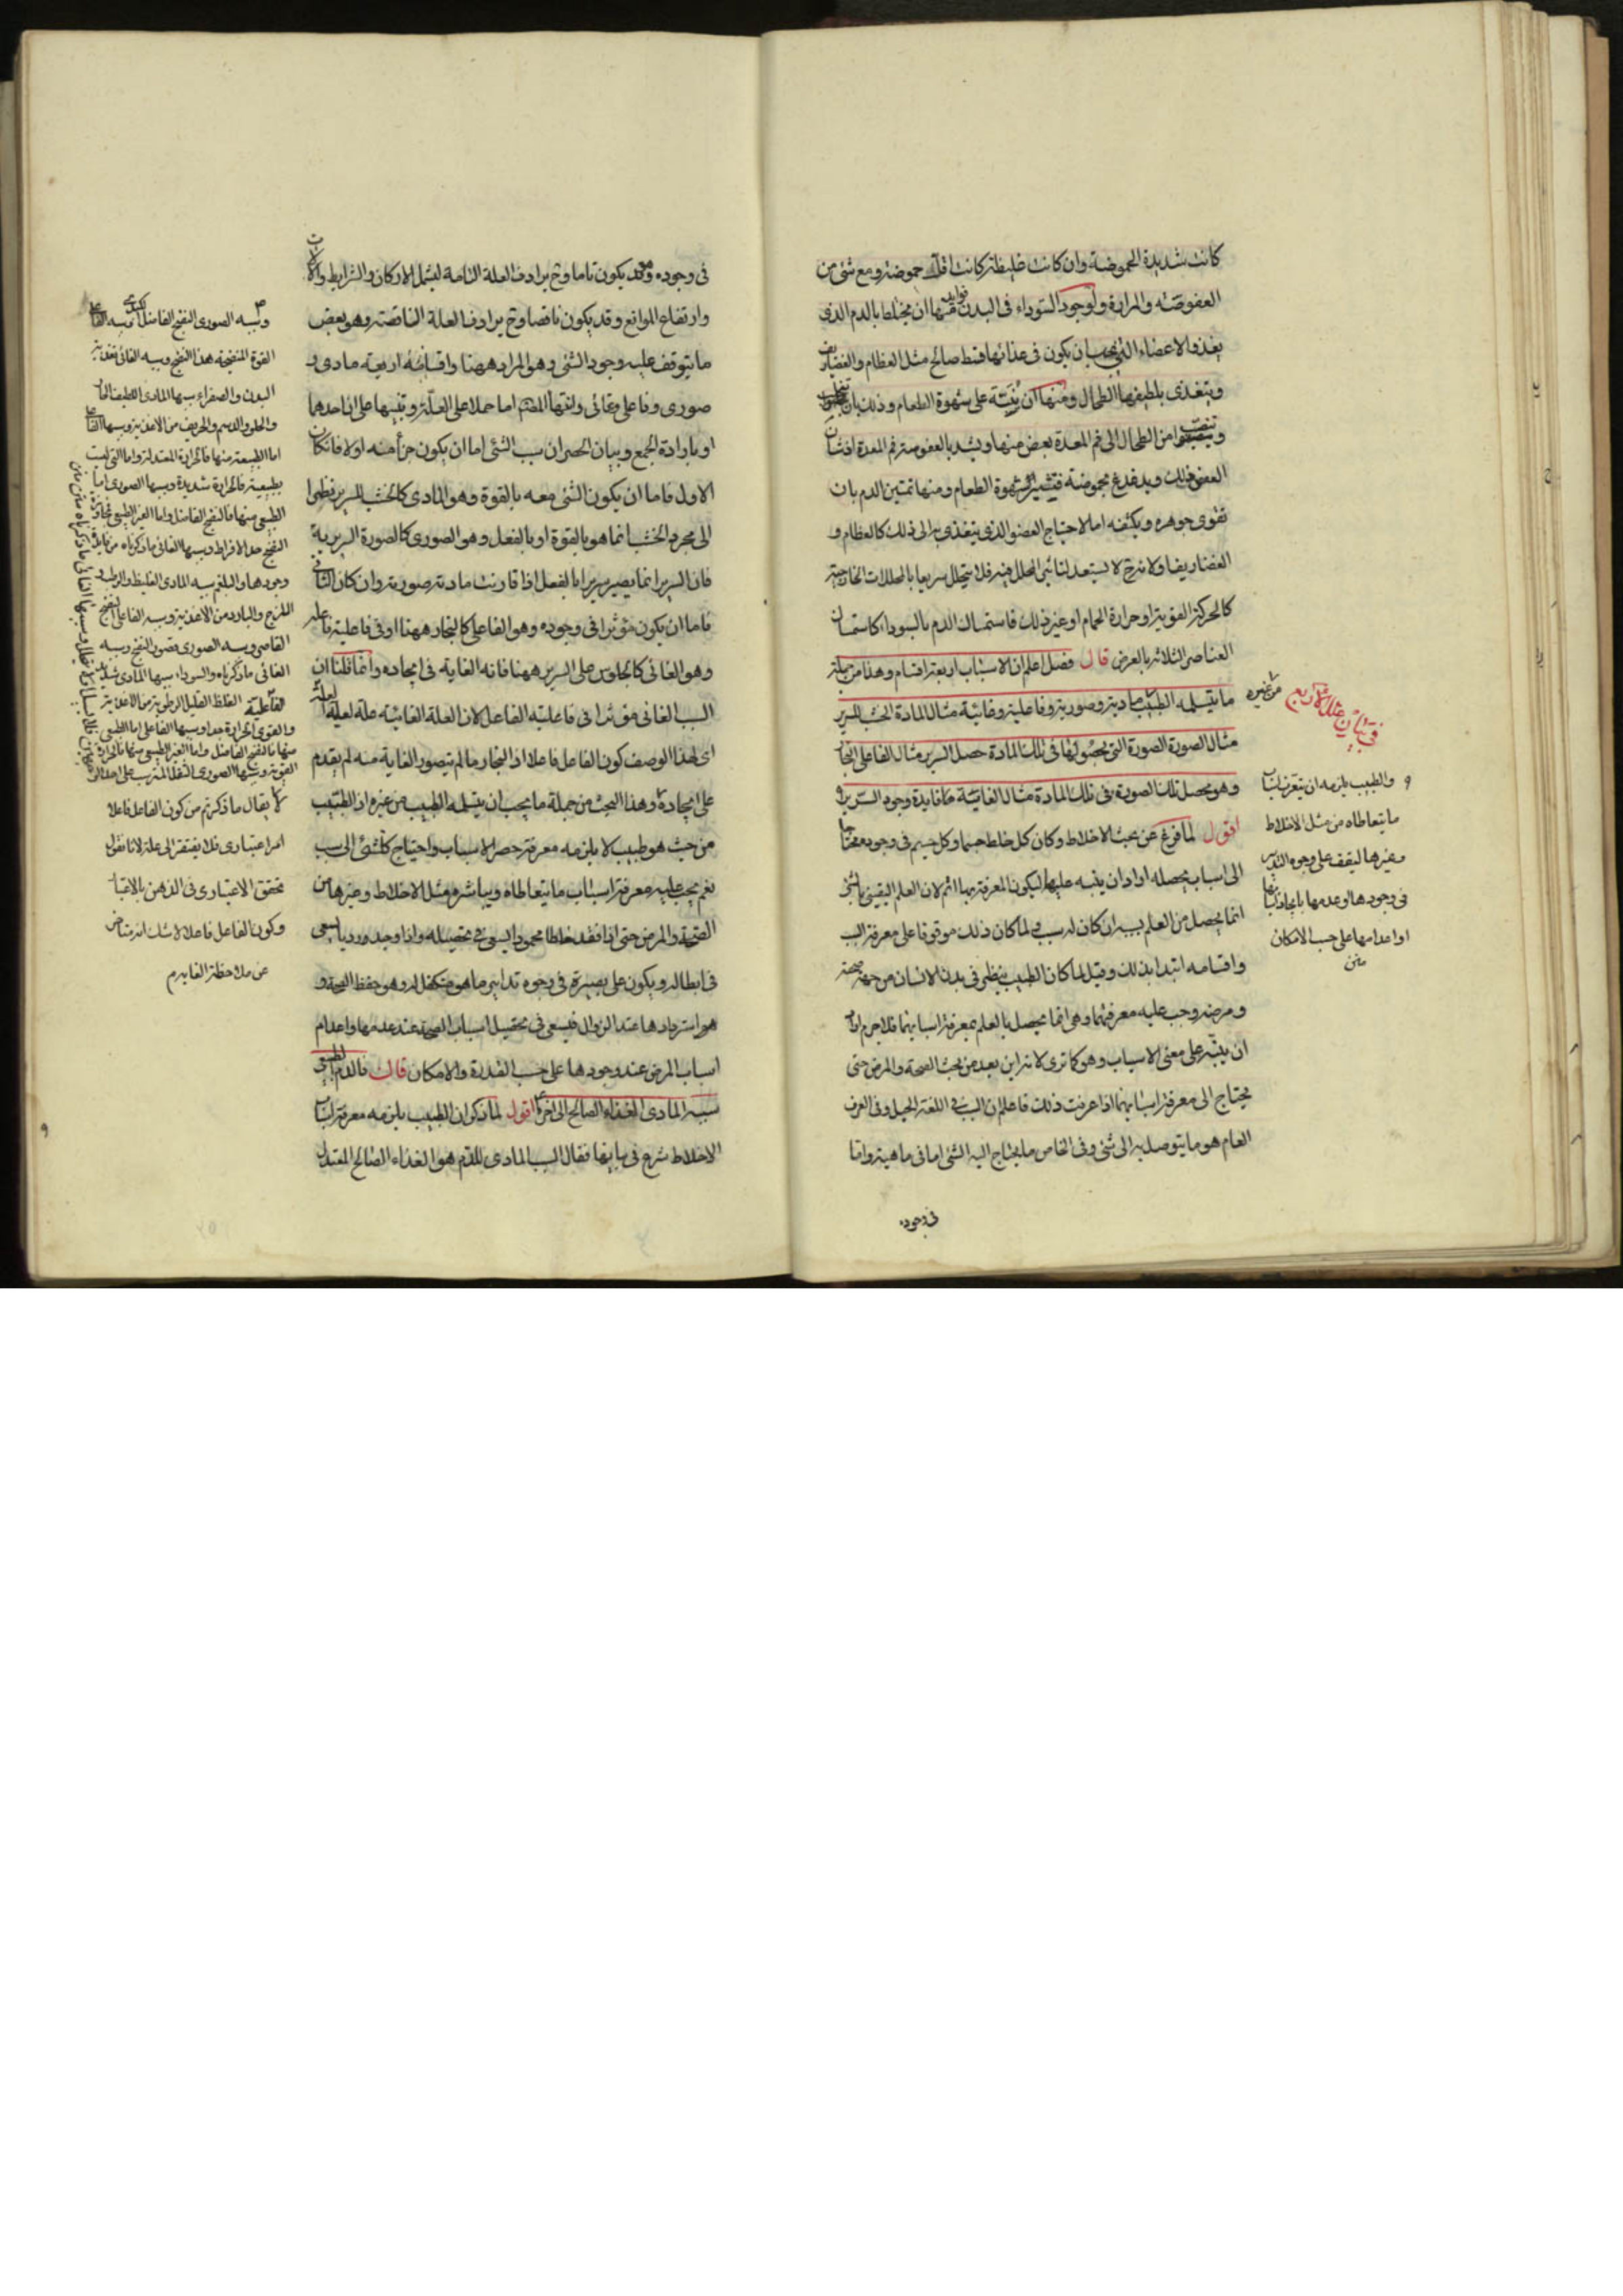 كانت شديدة الحموضة وان كانت غليظة كانت اقل حموضة ومع شئ من
العفوصة والمرارة ولوجود السوداء فى البدن فوايد منها ان يختلط بالدم الذى
يغذو الاعضاء التى يجب ان يكون فى غذائها قسط صالح مثل العظام والغضاريف
ويتغذى بلطيفها الطحال ومنها ان ينبه على شهوة الطعام وذلك بان
من الطحال الى فم المعدة بعض منها ويشد بالعفوصة فم المعدة
العفص ذلك ويدغدغ بحموضة فتثير شهوة الطعام ومنها تمتين الدم بان
تقوى جوهره ويكثفه اما لاحتياج العضو الذى يتغذى به الى ذلك كالعظام و
الغضاريف او لانه ح لا يستعد لتاثير المحلل فيه فلا يتحلل سريعا بالمحللات الخارجية
كالحركة القوية او حرارة الحمام او غير ذلك فاستمساك الدم بالسوداء كاستمساك
العناصر الثلاثة بالعرض قال فصل اعلم ان الاسباب اربعة اقسام وهذا من جملة
ما يتسلمه الطبيب مادية وصورية وفاعلية وغائية مثال المادة الخشب للسرير
من غيره
فى بيان علل الاربع
مثال الصورة الصورة التى بحصولها فى تلك المادة حصل السرير مثال الفاعلى النجار
وهو محصل تلك الصورة فى تلك المادة مثال الغائية ما فايدة وجود السرير
اقول لما فرغ عن بحث الاخلاط وكان كل خلط جسما وكل جسم فى وجوده محتاجا
الى اسباب يحصله اراد ان ينبه عليها ليكون المعرفة بها اتم لان العلم اليقينى بالشئ
انما يحصل من العلم بسببه ان كان له سبب ولما كان ذلك موقوفا على معرفة السبب
واقسامه ابتدا بذلك وقيل لما كان الطبيب ينظر فى بدن الانسان من جهة صحته
ومرضه وجب عليه معرفتهما وهى انما يحصل بالعلم بمعرفة اسبابهما فلاجرم اراد
ان ينبه على معنى الاسباب وهو كما ترى لانه اين بعد من بحث الصحة والمرض حتى
يحتاج الى معرفة اسبابهما اذا عرفت ذلك فاعلم ان السبب فى اللغة الحبل وفى العرف
العام هو ما يتوصل به الى شئ وفى الخاص ما يحتاج اليه الشئ اما فى ماهيته واما
فى وجوده
والطبيب يلزمه ان يتعرف اسباب
ما يتعاطاه من مثل الاخلاط
وغيرها ليقف على وجوه التدبير
فى وجودها وعدمها بايجاد اسبابها
او اعدامها على حسب الامكان
متن
فى وجوده وقد يكون تاما وح يرادف العلة التامة ليشمل الاركان والشرايط والالات
وارتفاع الموانع وقد يكون ناقصا وح يرادف العلة الناقصة وهو بعض
ما يتوقف عليه وجود الشئ وهو المراد ههنا واقسامه اربعة مادى و
صورى وفاعلى وغائى وانثها المص اما حملا على العلة وتنبيها على اتحادهما
او بارادة الجمع وبيان الحصر ان سبب الشئ اما ان يكون جزأ منه او لا فان كان
الاول فاما ان يكون الشئ معه بالقوة وهو المادى كالخشب للسرير نظرا
الى مجرد الخشب انما هو بالقوة او بالفعل وهو الصورى كالصورة السريرية
فان السرير انما يصير سريرا بالفعل اذا قارنت مادته صورته وان كان الثانى
فاما ان يكون مؤثرا فى وجوده وهو الفاعلى كالنجار ههنا او فى فاعلية فاعله
وهو الغائى كالجلوس على السرير ههنا فانه الغاية فى ايجاده وانما قلنا ان
السبب الغائى مؤثرا فى فاعلية الفاعل لان العلة الغائية علة لعلية العلة
اى لهذا الوصف كون الفاعل فاعلا اذ النجار ما لم يتصور الغاية منه لم يقدم
على ايجاده وهذا البحث من جملة ما يجب ان يتسلمه الطبيب من غيره اذ الطبيب
من حيث هو طبيب لا يلزمه معرفة حصر الاسباب واحتياج كل شئ الى سبب
نعم يجب عليه معرفة اسباب ما يتعاطاه ويباشره مثل الاخلاط وغيرها من
الصحة والمرض حتى اذا فقد خلطا محمودا يسعى فى تحصيله واذا وجد رديا يسعى
فى ابطاله ويكون على بصيرة فى وجوه تدابير ما هو متكفل له وهو حفظ الصحة و
هو استردادها عند الزوال فيسعى فى تحصيل اسباب الصحة عند عدمها واعدام
اسباب المرض عند وجودها على حسب القدرة والامكان قال فالدم الطبيعى
سببه المادى الغذاء الصالح الى اخره اقول لما ذكر ان الطبيب يلزمه معرفة اسباب
الاخلاط شرع فى بيانها فقال السبب المادى للدم هو الغذاء الصالح المعتدل
وسببه الصورى النضج الفاضل وسببه الفاعلى
القوة المنضجة هذا النضج وسببه الغائى تغذية
البدن والصفراء سببها المادى اللطيف الحار
والحلو والدسم والحريف من الاغذية وسببها الفاعلى
اما الطبيعية منها فالحرارة المعتدلة واما التى ليست
بطبيعية فالحرارة شديدة وسببها الصورى اما
الطبيعى منها فالنضج الفاضل واما الغير الطبيعى
النضج حد الافراط وسببها الغائى ما ذكرناه من فايدة
وجودها والبلغم سببه المادى الغليظ والرطب
اللزج والبارد من الاغذية وسببه الفاعلى النضج
القاصر وسببه الصورى قصور النضج وسببه
الغائى ما ذكرناه والسوداء سببها المادى شديد
الغلظ القليل الرطوبة من الاغذية
والقوى الحرارة جدا وسببها الفاعلى اما الطبيعى
منها فالنضج الفاضل واما الغير الطبيعى منها فالحرارة
القوية وسببها الصورى الثفل المترسب
لا يقال ما ذكرتم من كون الفاعل فاعلا
امرا اعتبارى فلا يفتقر الى علة لانا نقول
تحقق الاعتبارى فى الذهن بالاعتبار
وكون الفاعل فاعلا لا شك انه مستفاض
عن ملاحظة الغاية م